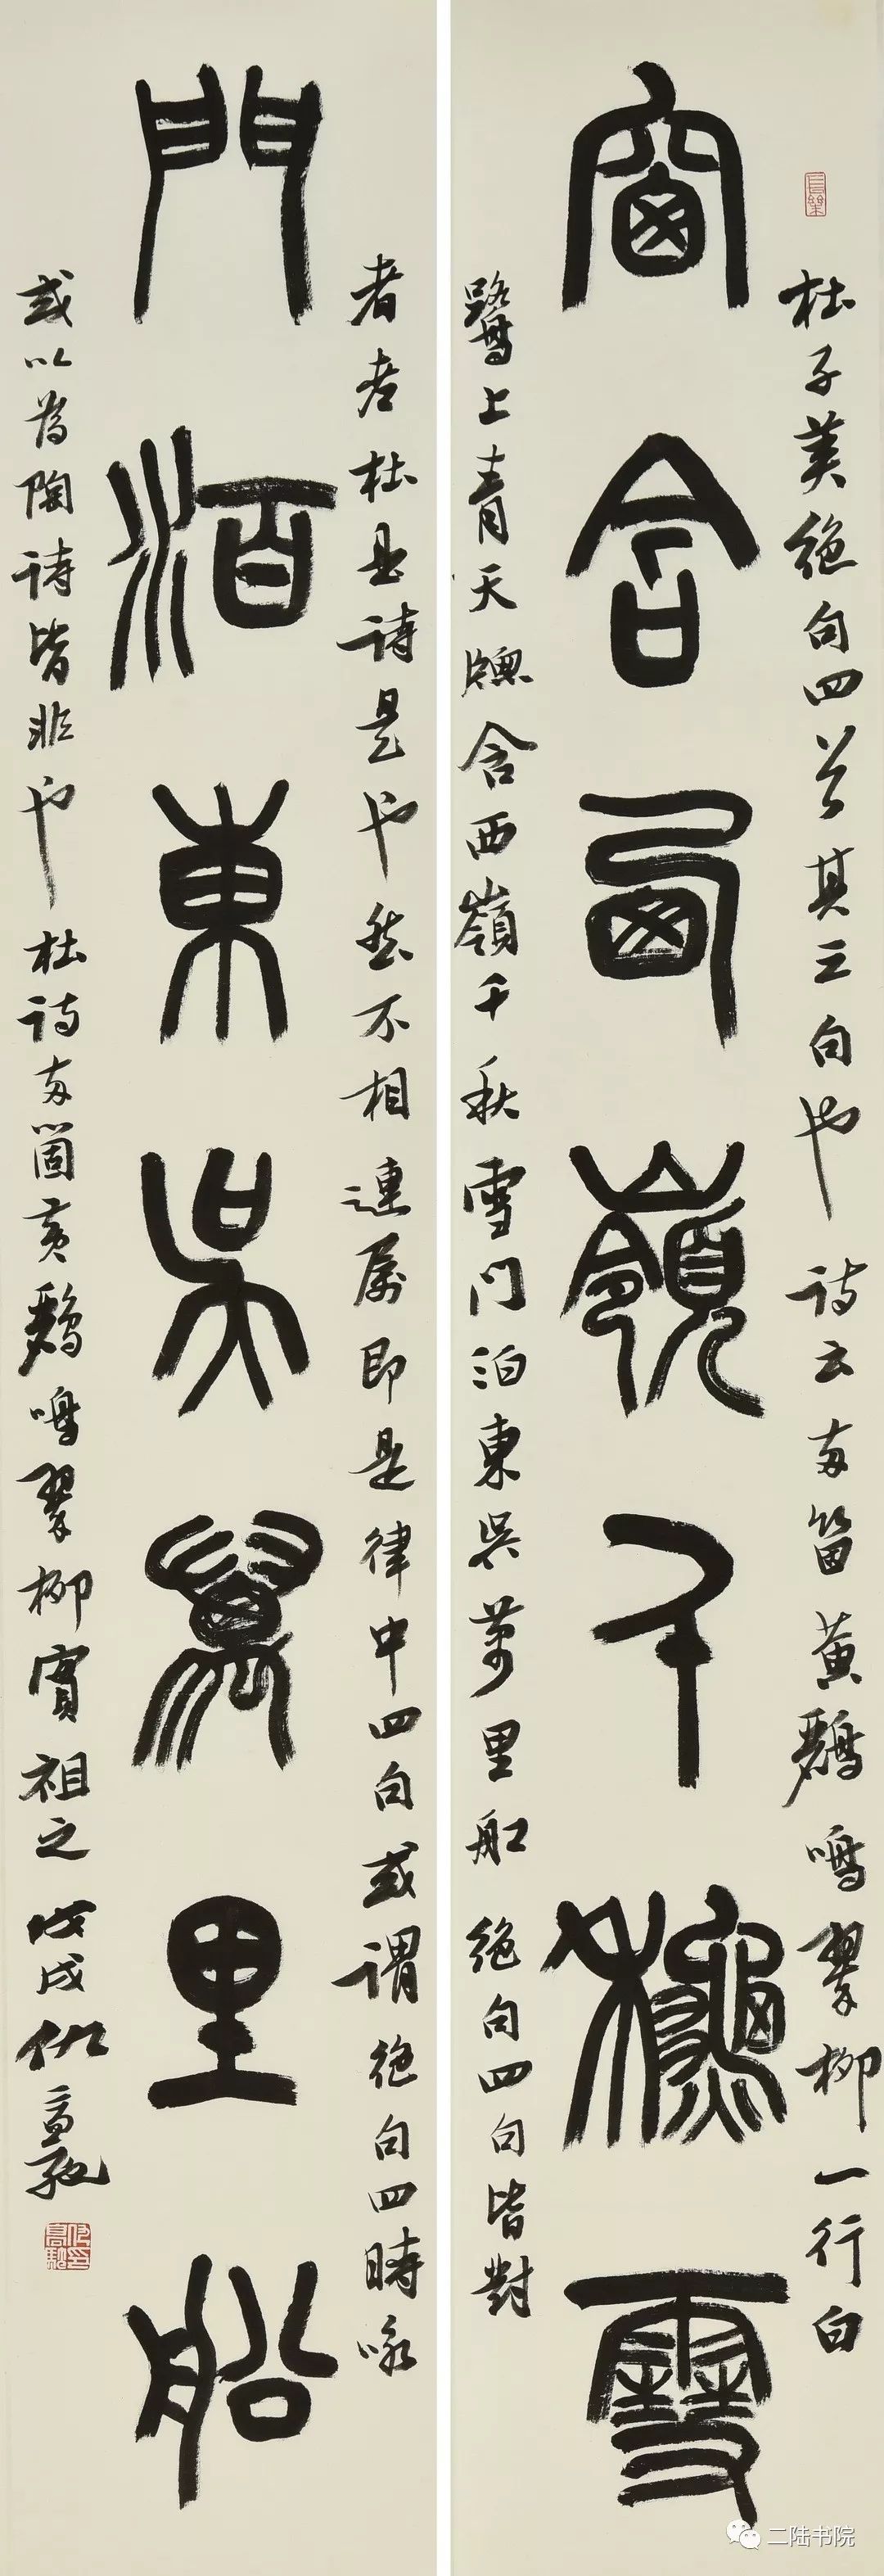 杜子美絶句四首其三句也 詩云两箇黄鸝鳴翠柳一行白
窗含西嶺千秋雪
鷺上青天牕含西嶺千秋雪門泊東吴萬里船 絶句四句皆對
者老杜是詩是也然不相連属即是律中四句或謂絶句四時咏
門泊東吴萬里船
或以為陶詩皆非也 杜詩两箇黄鸝鳴翠柳實祖之 戊戌仇高馳
長樂
二陆书院